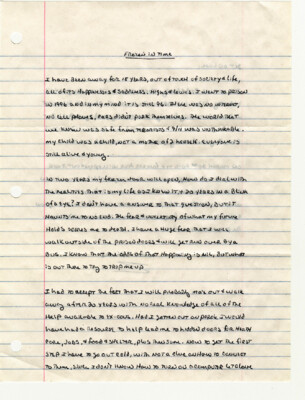 Frozen in Time
I have been away for 18 years, out of touch of society & life,
all of its happiness & sadness, highs & lows. I went to prison
in 1996 and in my mind it is still 96. There was no internet,
no cell phones, cars didn't park themselves. The world that
we know was safe from terrorists & 9/11 was unthinkable.
My child was a child, not a mother of 2 herself. Everyone is
still alive & young.
In two years my prison door will open, how do I deal with
the realities that is my life as I know it & 20 years in a blink
of a eye? I don't have a answer to that question, but it
haunts me to no end. The fear & uncertainty of what my future
holds scares me to death. I have a huge fear that I will
walk outside of the prison doors & will get run over by a
bus. I know that the odds of that happening is nil, but what
is out there to try to trip me up.
I had to accept the fact that I will probably max out & walk
away after 20 years with no real knowledge of all of the
help available to ex-cons. Had I gotten out on parole I would
have had a resource to help lead me to hidden doors for health
care, jobs, & food & shelter, plus pensions. Now to get the first
step I have to go out cold, with not a clue on how to connect
to them, since I don't know how to turn on a computer let alone